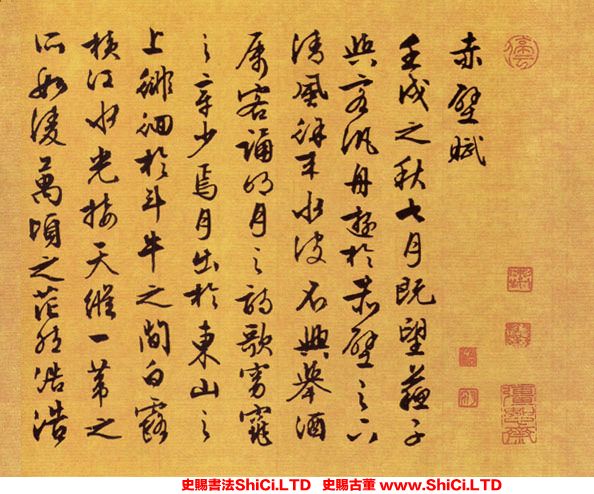 赤壁賦
壬戌之秋七月既望蘇子
與客汎舟遊於赤壁之下
清風徐來水波不興舉酒
屬客誦明月之詩歌窈窕
之章少焉月出於東山之
上徘徊於斗牛之間白露
橫江水光接天縱一葦之
所如淩萬頃之茫然浩浩
史賜書法ShiCi.LTD 史賜古董 www.ShiCi.LTD